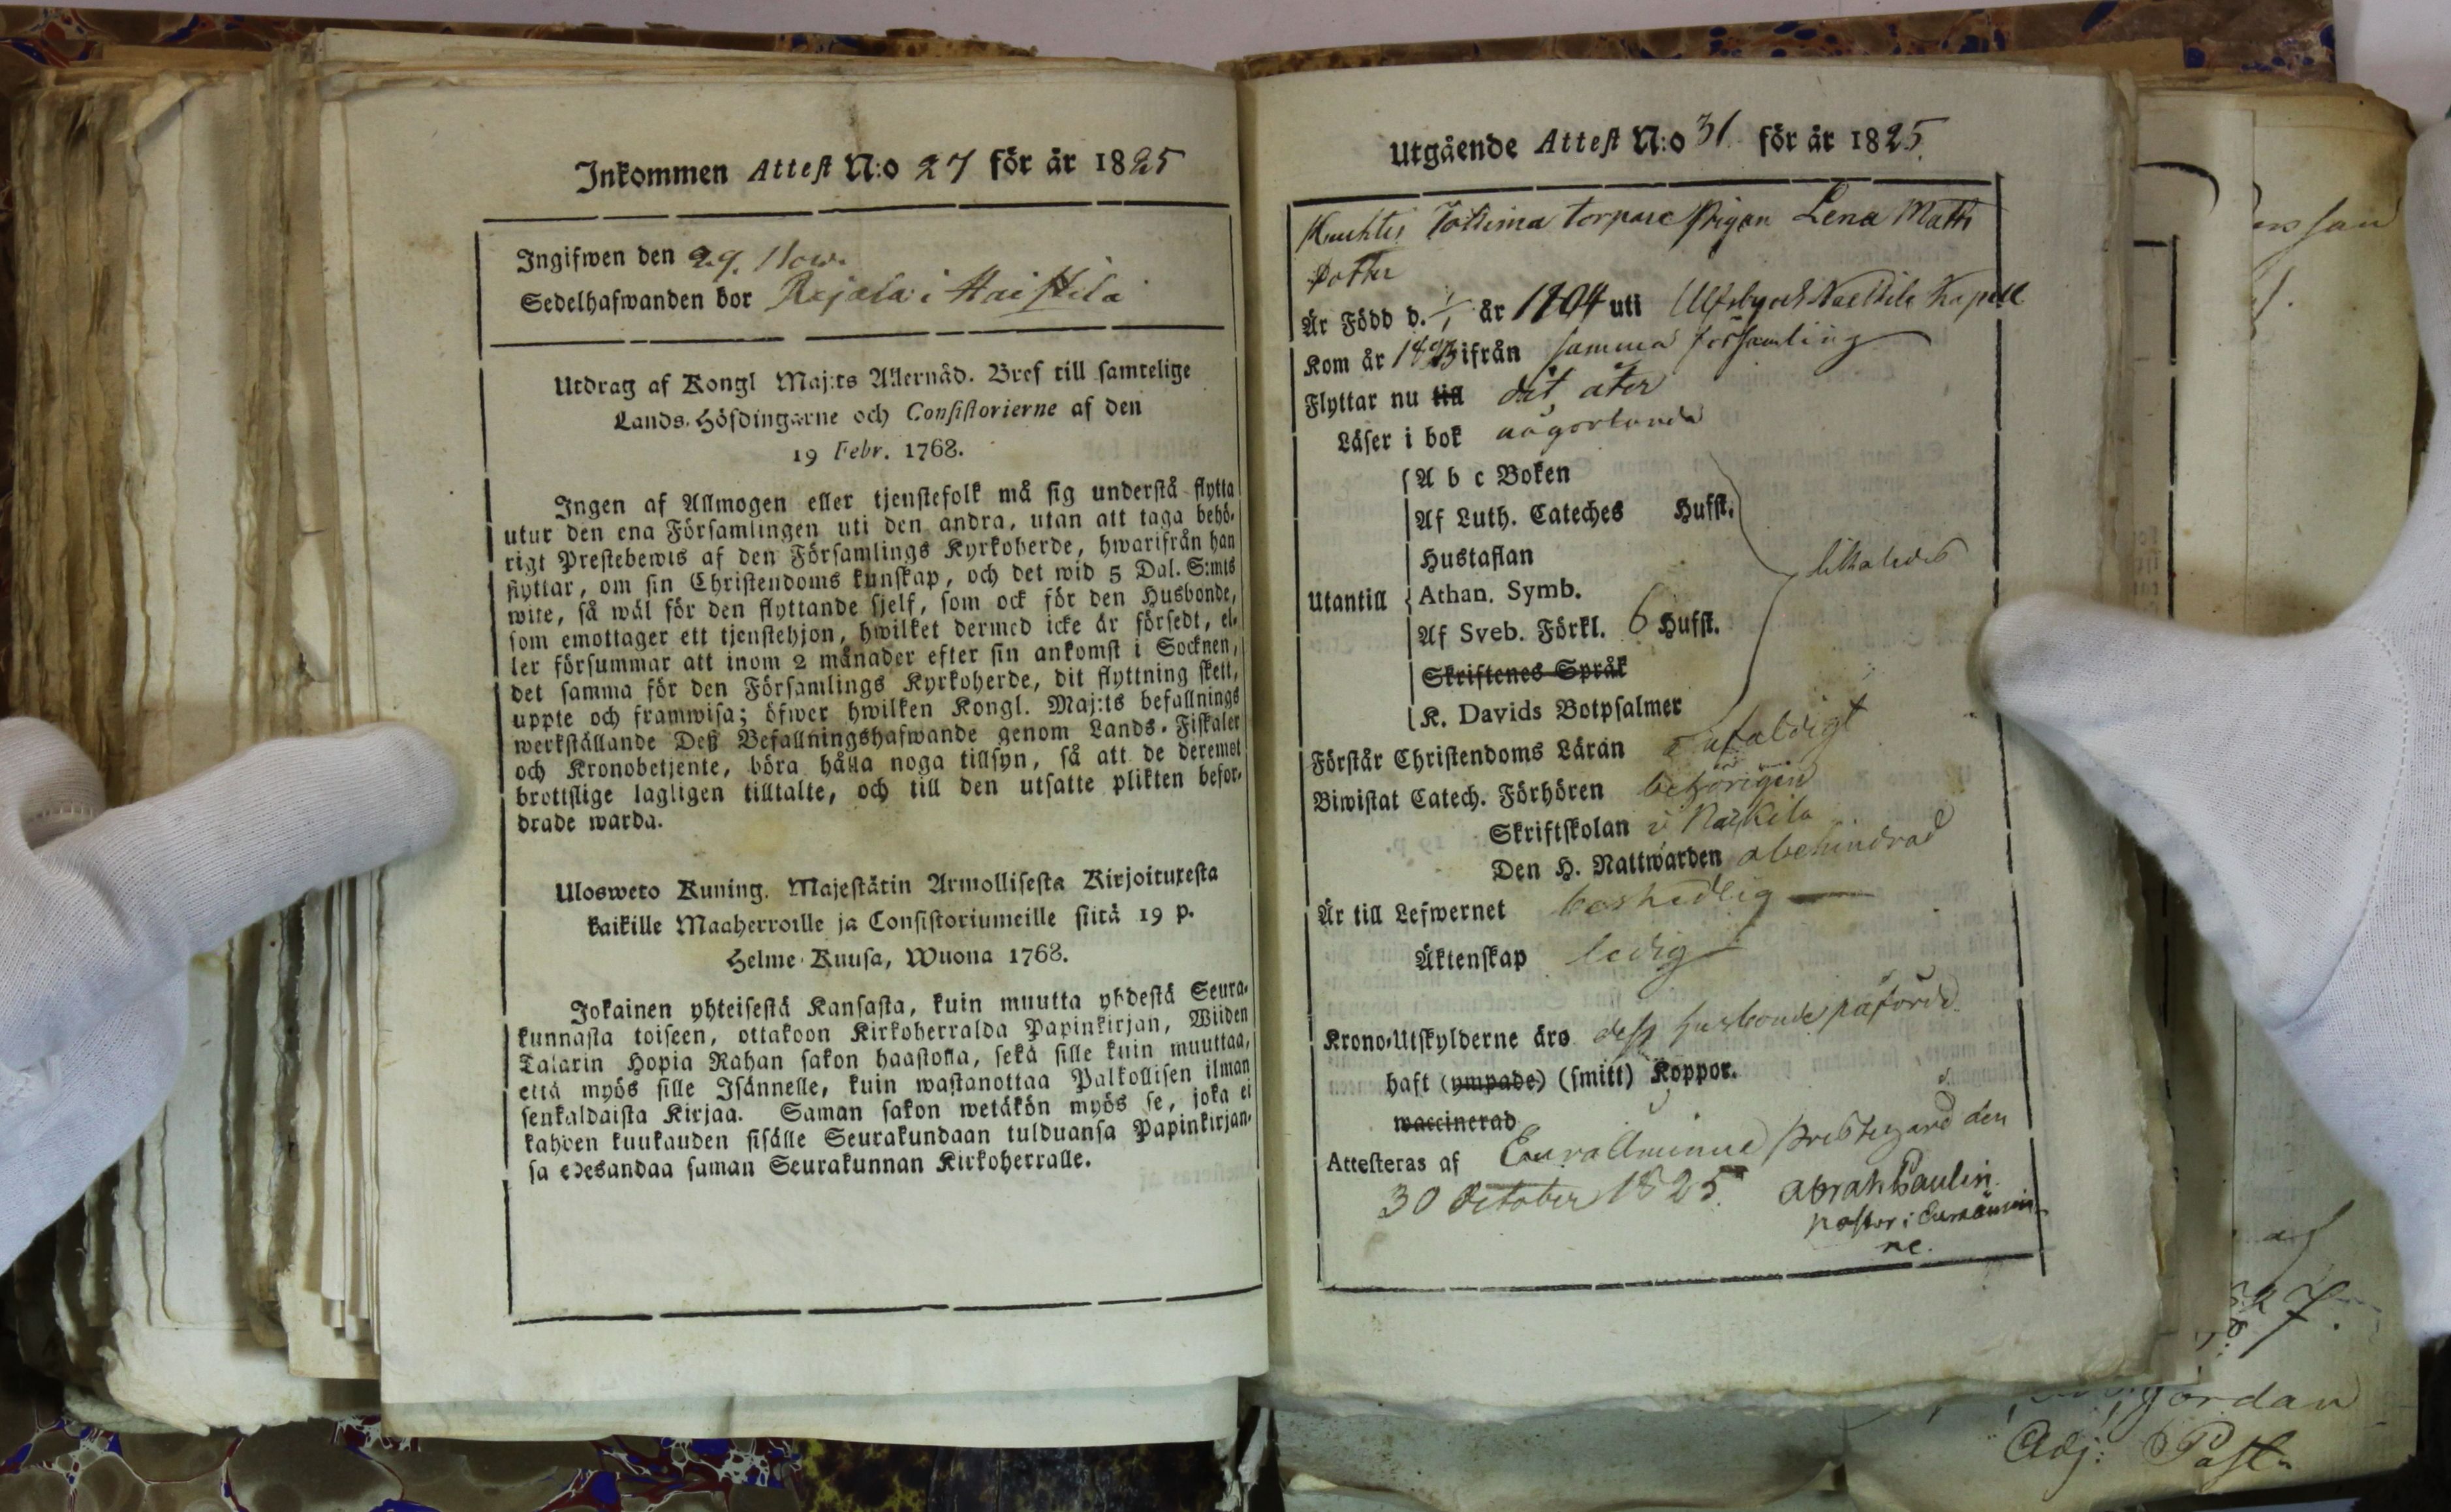 Inkommen Attest N:o 27 för år 1825
Ingifwen den 29. Now.
Sedelhafwanden bor Rejala i Haistila
Utdrag af Kongl Maj:ts Allernåd. Bref till samtelige
Lands-Höfdingarne och Consistorierne af den
19 Febr. 1768.
Ingen af Allmogen eller tjenstefolk må sig understå flytta
utur den ena Församlingen uti den andra, utan att taga behö-
rigt Prestebewis af den Församlings Kyrkoherde, hwarifrån han
flyttar, om sin Christendoms kunskap, och det wid 5 Dal. S:mts
wite, så wäl för den flyttande sjelf, som ock för den Husbonde,
som emottager ett tjenstehjon, hwilket dermed icke är försedt, el-
ler försummar att inom 2 månader efter sin ankomst i Socknen,
det samma för den Församlings Kyrkoherde, dit flyttning skett,
uppte och framwisa; öfwer hwilken Kongl. Maj:ts befallnings
werkställande Deß Befallningshafwande genom Lands-Fiskaler
och Kronobetjente, böra hålla noga tillsyn, så att de deremot
brottslige lagligen tilltalte, och till den utsatte plikten befor-
drade warda.
Ulosweto Kuning. Majestätin Armollisesta Kirjoituxesta
kaikille Maaherroille ja Consistoriumeille siitä 19 p.
Helme-Kuusa, Wuona 1768.
Jokainen yhteisestä Kansasta, kuin muutta yhdestä Seura-
kunnasta toiseen, ottakoon Kirkoherralda Papinkirjan, Wiiden
Talarin Hopia Rahan sakon haastolla, sekä sille kuin muuttaa,
että myös sille Isännelle, kuin wastanottaa Palkollisen ilman
senkaldaista Kirjaa. Saman sakon wetäkön myös se, joka ei
kahden kuukauden sisälle Seurakundaan tulduansa Papinkirjan-
sa edesandaa saman Seurakunnan Kirkoherralle.
Utgående Attest N:o 31 för år 1825.
Knuhtis Tottima torpare Pigan Lena Matts
dotter
Är Född d. 1/1 år 1804 uti Ulfsby och Nackila Kapell
Kom år 1823 ifrån samma församling
Flyttar nu till dit åter
Läser i bok någorlunda
A b c Boken
Af Luth. Cateches Hufst.
Hustaflan
Utantill Athan. Symb. likaledes
Af Sveb. Förkl. 6 Hufst.
Skriftenes Språk
K. Davids Botpsalmer
Förstår Christendoms Läran enfaldigt
Biwistat Catech. Förhören behörigen
Skriftskolan i Nackila
Den H. Nattwarden obehindrad
Är till Lefwernet beskedlig
Äktenskap ledig
Krono-Utskylderne äro dess husbonde påförde.
haft (ympade) (smitt) Koppor.
waccinerad
Attesteras af Euraåminne Prestegård den
30 October 1825. Abrah Paulin.
pastor i Euraåmin-
ne.
af
gordan
Adj: Past.